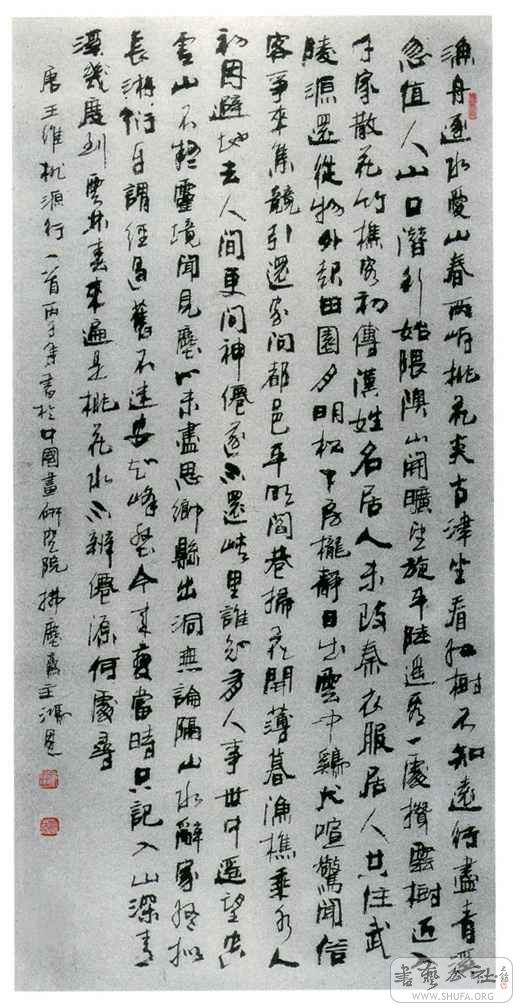 漁舟逐水愛山春兩岸桃花夾古津坐看紅樹不知遠行盡青溪
忽值人山口潛行始隈隩山開曠望旋平陸遙看一處攢雲樹近入
千家散花竹樵客初傳漢姓名居人未改秦衣服居人共住武
陵源還從物外起田園月明松下房櫳靜日出雲中鷄犬喧驚聞俗
客爭來集競引還家問都邑平明閭巷掃花開薄暮漁樵乘水入
初因避地去人間更問神僊遂不還峽里誰知有人事世中遙望空
雲山不疑靈境聞見塵心未盡思鄉縣出洞無論隔山水辭家終擬
長游衍自謂經過舊不迷安知峰壑今來變當時只記入山深青
溪幾度到雲林春來遍是桃花水不辨僊源何處尋
唐王維桃源行一首丙子年書於中國畫研究院拂塵齋主
書藝公社
WWW.SHUFA.ORG